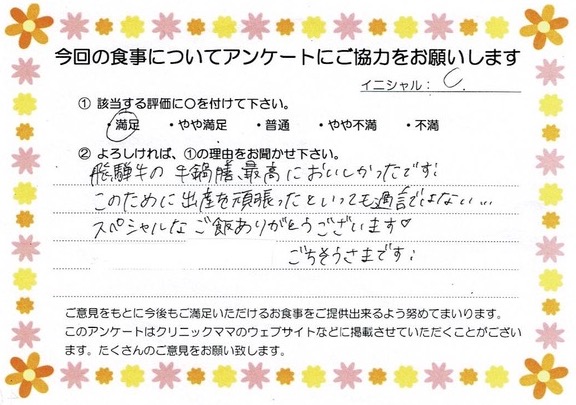 今回の食事についてアンケートにご協力をお願いします
イニシャル： C.
① 該当する評価に○を付けて下さい。
・満足 ・やや満足 ・普通 ・やや不満 ・不満
② よろしければ、①の理由をお聞かせ下さい。
飛騨牛の牛鍋膳、最高においしかったです!
このために出産を頑張ったといっても過言ではない...
スペシャルなご飯ありがとうございます♡
ごちそうさまです!
ご意見をもとに今後もご満足いただけるお食事をご提供出来るよう努めてまいります。
このアンケートはクリニックママのウェブサイトなどに掲載させていただくことがござい
ます。たくさんのご意見をお願い致します。